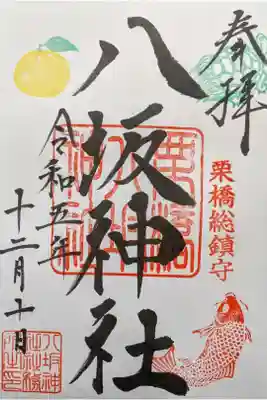 奉拝
栗橋総鎮守
八坂神社
令和五年
十二月十日